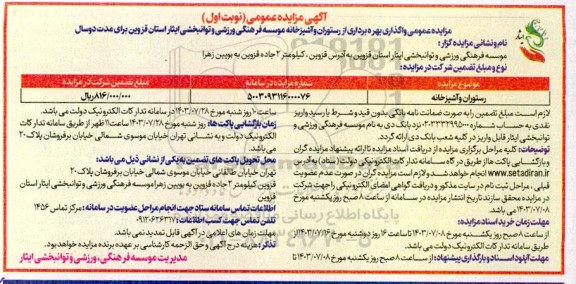 آگهی مزایده عمومی (نوبت اول)
مزایده عمومی واگذاری بهره برداری از رستوران و آشپزخانه موسسه فرهنگی ورزشی و توانبخشی ایثار استان قزوین برای مدت دوسال
نام و نشانی مزایده گزار :
موسسه فرهنگی ورزشی و توانبخشی ایثار استان قزوین به آدرس قزوین ، کیلومتر ۲ جاده قزوین به بویین زهرا
نوع و مبلغ تضمین شرکت در مزایده :
موضوع مزایده
شماره مزایده در سامانه
مبلغ تضمین شرکت در مزایده
رستوران و آشپزخانه
۵۰۰۳۰۹۳۱۱۶۰۰۰۰۷۶
۸۱۶/۰۰۰/۰۰۰ ریال
لازم است مبلغ تضمین را به صورت ضمانت نامه بانکی بدون قید و شرط یا رسید واریز
نقدی به حساب شماره
نزد بانک دی به نام موسسه فرهنگی ورزشی و
توانبخشی ایثار قابل واریز در کلیه شعب بانک دی ارائه گردد.
توضیحات: کلیه مراحل برگزاری مزایده از دریافت اسناد مزایده تا ارائه پیشنهاد مزایده گران
و بازگشایی پاکت ها از طریق درگاه سامانه تدارکات الکترونیکی دولت (ستاد) به آدرس
www.setadiran.ir انجام خواهد شد و لازم است مزایده گران در صورت عدم عضویت
قبلی ، مراحل ثبت نام در سایت مذکور و دریافت گواهی امضای الکترونیکی را جهت شرکت
در مزایده محقق سازند تاریخ انتشار مزایده در سامانه از ساعت ۸ صبح روز یکشنبه مورخ
۱۴۰۳/۰۷/۰۸ می باشد.
مهلت زمان خرید اسناد مزایده:
از ساعت ۸ صبح روز یکشنبه مورخ ۱۴۰۳/۰۷/۰۸ تا ساعت ۱۶ روز دوشنبه مورخ ۱۴۰۳/۰۷/۱۶ از
طریق سامانه تدارکات الکترونیک دولت می باشد.
مهلت آپلود اسناد و بارگذاری پیشنهاد: از ساعت ۸ صبح روز یکشنبه مورخ ۱۴۰۳/۰۷/۰۸ تا
ساعت ۱۰ روز شنبه مورخ ۱۴۰۳/۰۷/۲۸ از طریق سامانه تدارکات الکترونیک دولت می باشد.
زمان بازگشایی پاکت ها: روز شنبه مورخ ۱۴۰۳/۰۷/۲۸ ساعت ۱۱ ظهر از طریق سامانه تدارکات
الکترونیک دولت و به نشانی تهران خیابان موسوی شمالی خیابان برفروشان پلاک ۲۰
می باشد.
محل تحویل پاکت های تضمین به یکی از نشانی ذیل می باشد:
تهران خیابان طالقانی خیابان موسوی شمالی خیابان برفروشان پلاک ۲۰
قزوین کیلومتر ۲ جاده قزوین به بویین زهرا موسسه فرهنگی ورزشی و توانبخشی ایثار استان
قزوین
اطلاعات تماس سامانه ستاد جهت انجام مراحل عضویت در سامانه : مرکز تماس ۱۴۵۶
تلفن تماس جهت کسب اطلاعات :
مهلت زمان های اعلامی در آگهی قابل تمدید نمی باشد.
تذکر : هزینه درج آگهی و حق الزحمه کارشناسی بر عهده برنده مزایده خواهد بود.
مدیریت موسسه فرهنگی ، ورزشی و توانبخشی ایثار